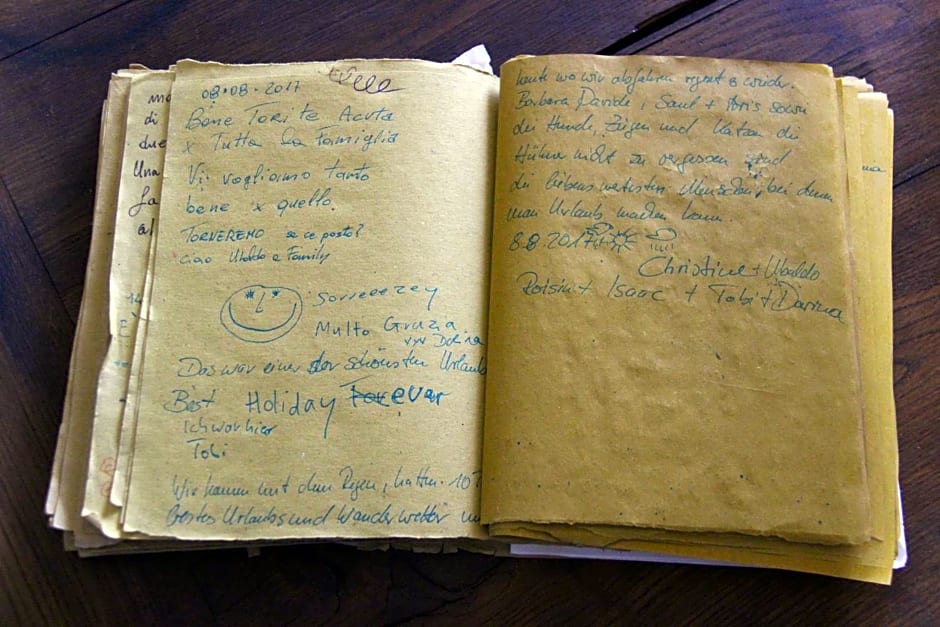 08.08.2017
Bene Torite Acuta
x Tutta la Famiglia
Vi vogliamo tanto
bene x quello.
TORNEREMO se ce posto?
ciao Ubaldo e Family
Sorreeezey
Multo Grazia
Das war einer der schönsten Urlaub
Best Holiday Forever
Ich war hier
Tobi
Wir kamen mit dem Regen, hatten 10 T
bestes Urlaubs und Wanderwetter un
heute wo wir abfahren regnet es wieder.
Barbara Davide, Saul + Iris sowie
die Hunde, Ziegen und Katzen die
Hühner nicht zu vergessen sind
die liebenswertesten Menschen, bei denen
man Urlaub machen kann.
8.8.2017
Christine + Ubaldo
Roisin + Isaac + Tobi + Darina
mo
di
due
Una